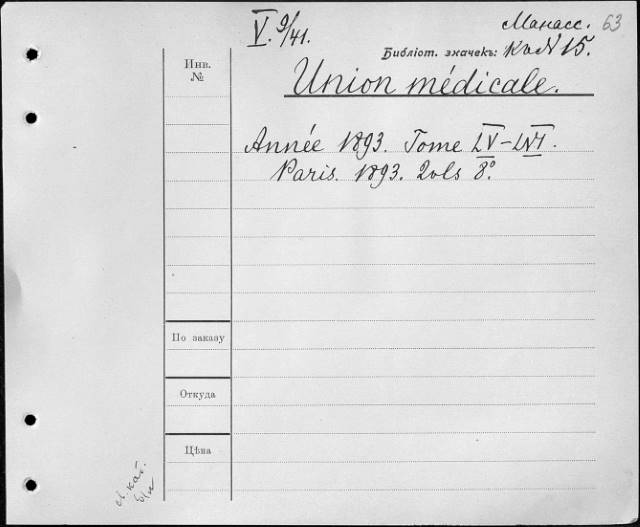 V. 9/41.
Манасс. 63
Библіот. значекъ: К. N 15.
Инв.
№
Union médicale.
Année 1893. Tome LV-LVI.
Paris. 1893. 2 vols 8°
По заказу
Откуда
Цѣна